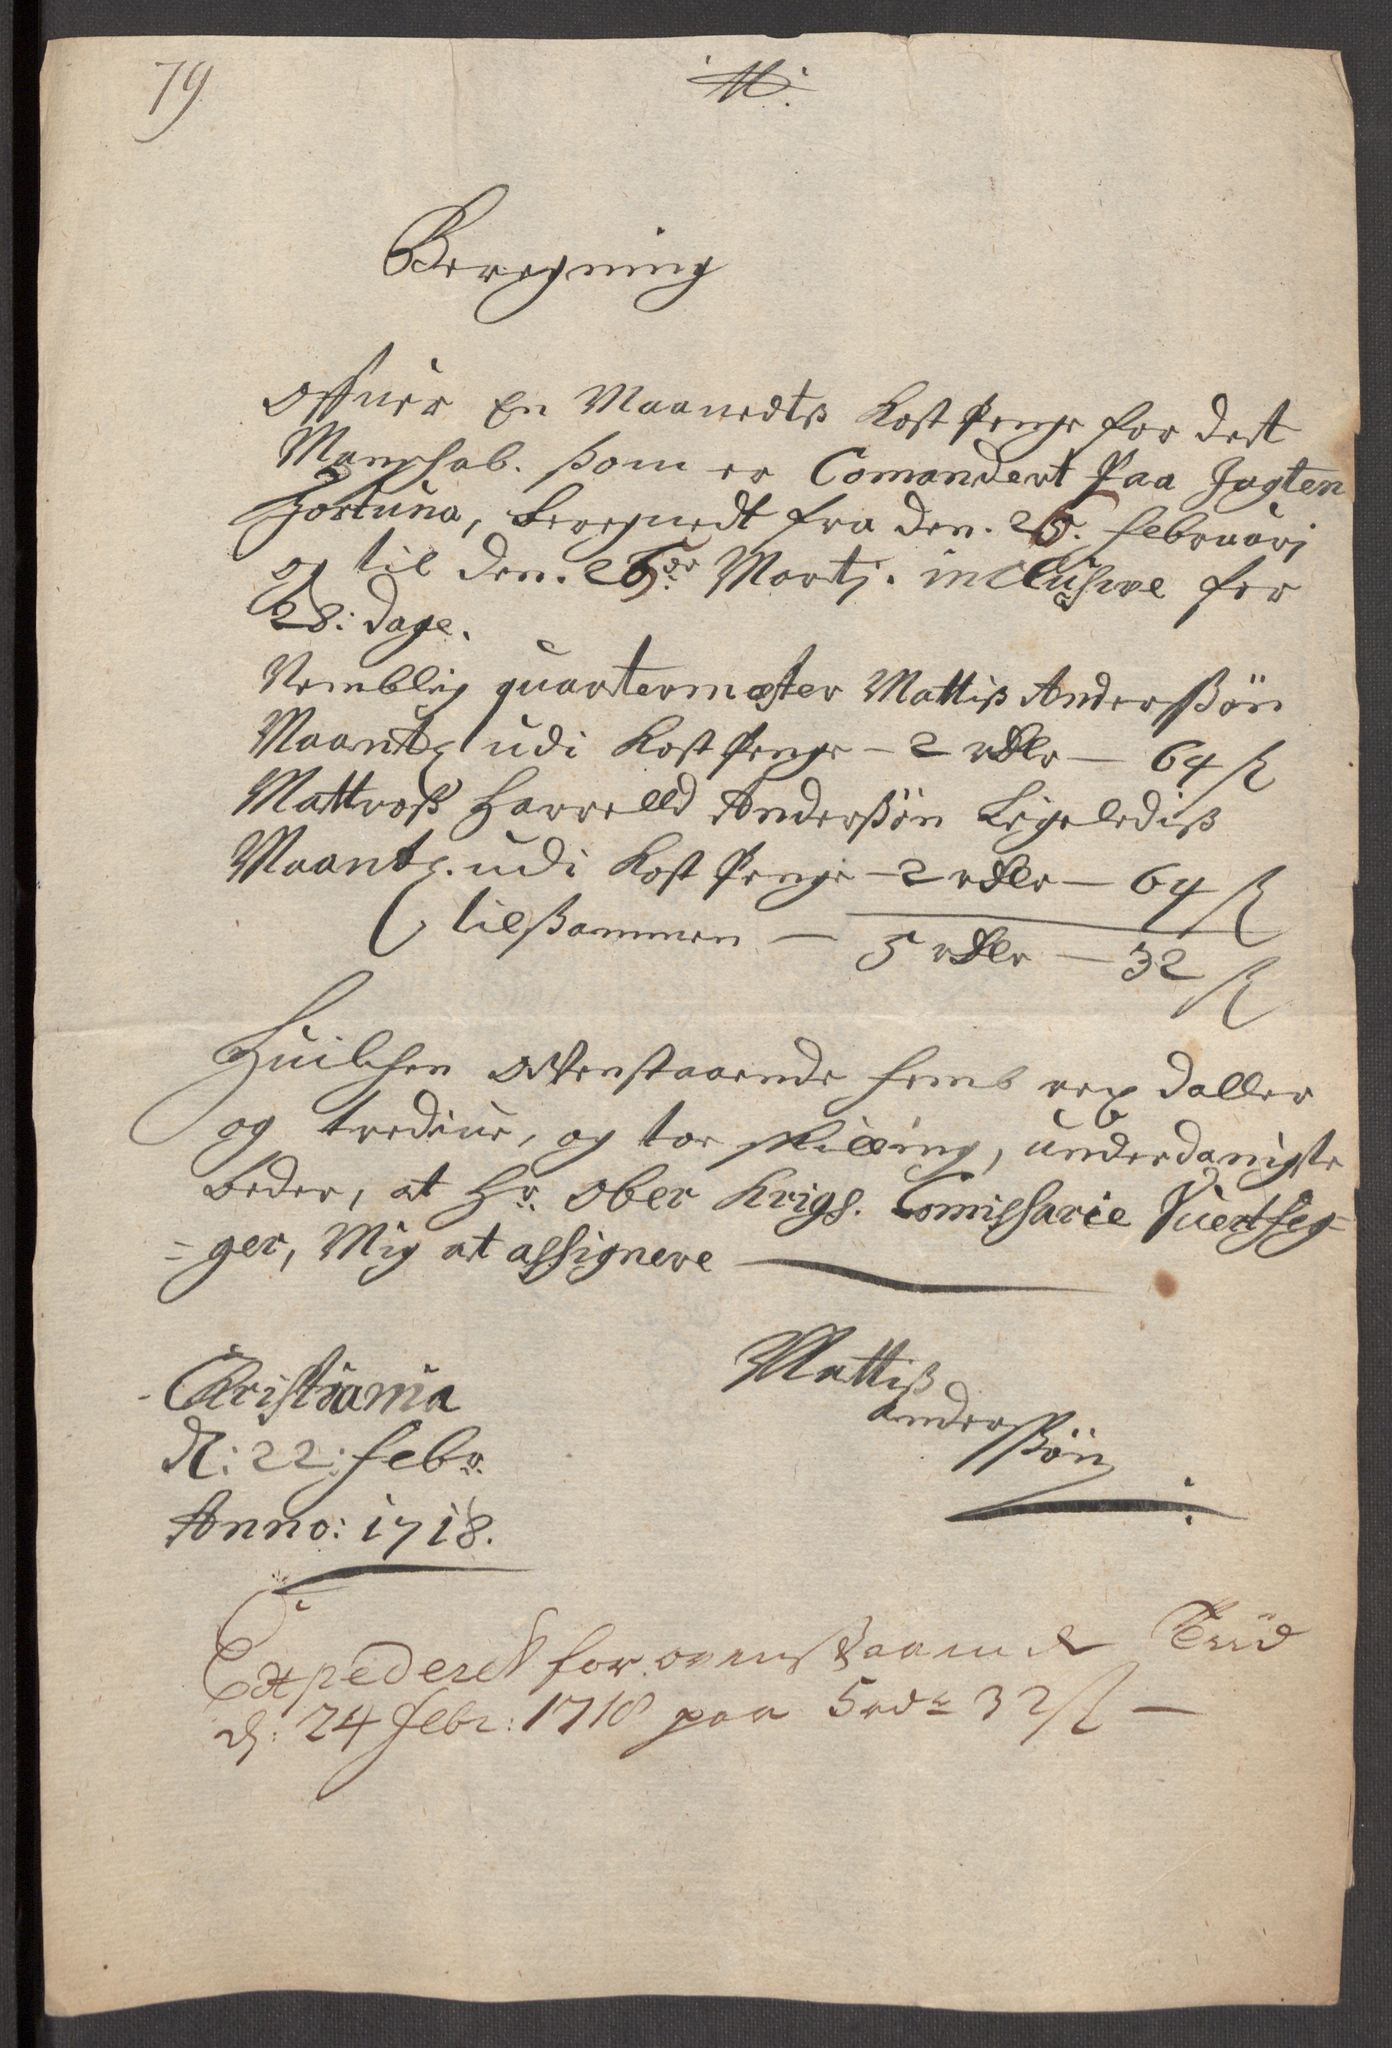 79
M:
Beregning
Offuer En Maanedtß Kost Penge for dest
Manschab. ßom er Comandert Paa Jagten
Fortuna, beregnedt fra den. 26. Februarj
og til den. 25de Martj. inclusive for
28: Dage.
Nemblig quartermester Mattiß Anderßøn
Maantl udi Kost Penge – 2 rdlr – 64 ß
Mattroß Harrelld Anderßøn Ligelediß
Maantl. udi Kost Penge – 2 rdlr – 64 ß
tilßammen – 5 rdlr – 32 ß
Huilchen ofvenstaaende femb rix daller
og trediue, og toe skilling, underdanigste
beder, at Hr. Ober Krigs. Comissarie
=ger, Mig at assignere
Christiania
d: 22: Febr.
Anno: 1718.
Mattiß
Ander
ßøn
Expederet for ovenstaaende
d: 24 Febr: 1718 paa 5 rdr 32 ß –